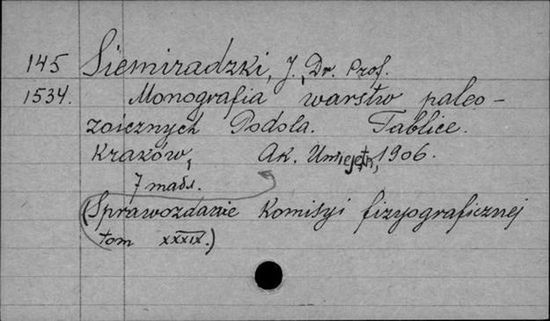 145 Siemiradzki, J., Dr. Prof.
1534. Monografia warstw paleo-
zoicznych Podola. Tablice.
Kraków, Ak. Umiejętn., 1906.
7 табл.
(Sprawozdanie Komisyi fizyograficznej
tom XXXIX.)